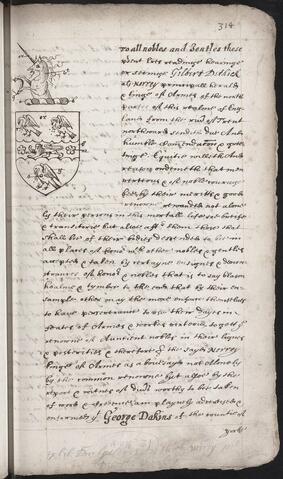 314
To all nobles and Gentles these
present letters readinge hearinge
or seeinge Gilbert Dethick
als Norrey principall herald &
kinge of Armes of the north
partes of this realme of Eng
land from the river of Trent
northward sendeth due And
humble Comendacon & gree
tinge Equitie willeth And
reason ordeineth that men
vertuous & of noble courage
bee by their merites & good
renowne rewarded not alone
by their persons in this mortall life soe briefe
& transitorie but also after them those that
shall bee of their bodies descended to bee in
all places of honor with other nobles & gentles
accepted & taken by certayne ensignes & demon
strances of honor & noblenes that is to say blazon
healme & tymber to the end that by their en
sample other may the more enforce themselves
to have perseverance to use their dayes in
feates of Armes & workes vertuous to gett the
renowne of Auncient nobles in their lignes
& posterities & therfore I the sayde Norrey
kinge of Armes as abovesayd not alonely
by the common renowne but also by the
report & witnes of divers worthy to bee taken
of word & credence am playnely advertised &
enformed that George Dakins of the countie of
Yorke